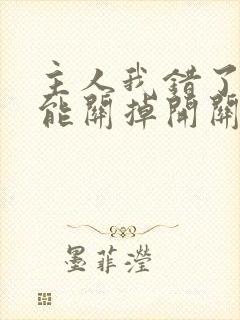 主人我錯了
能關掉開關
墨菲瀅